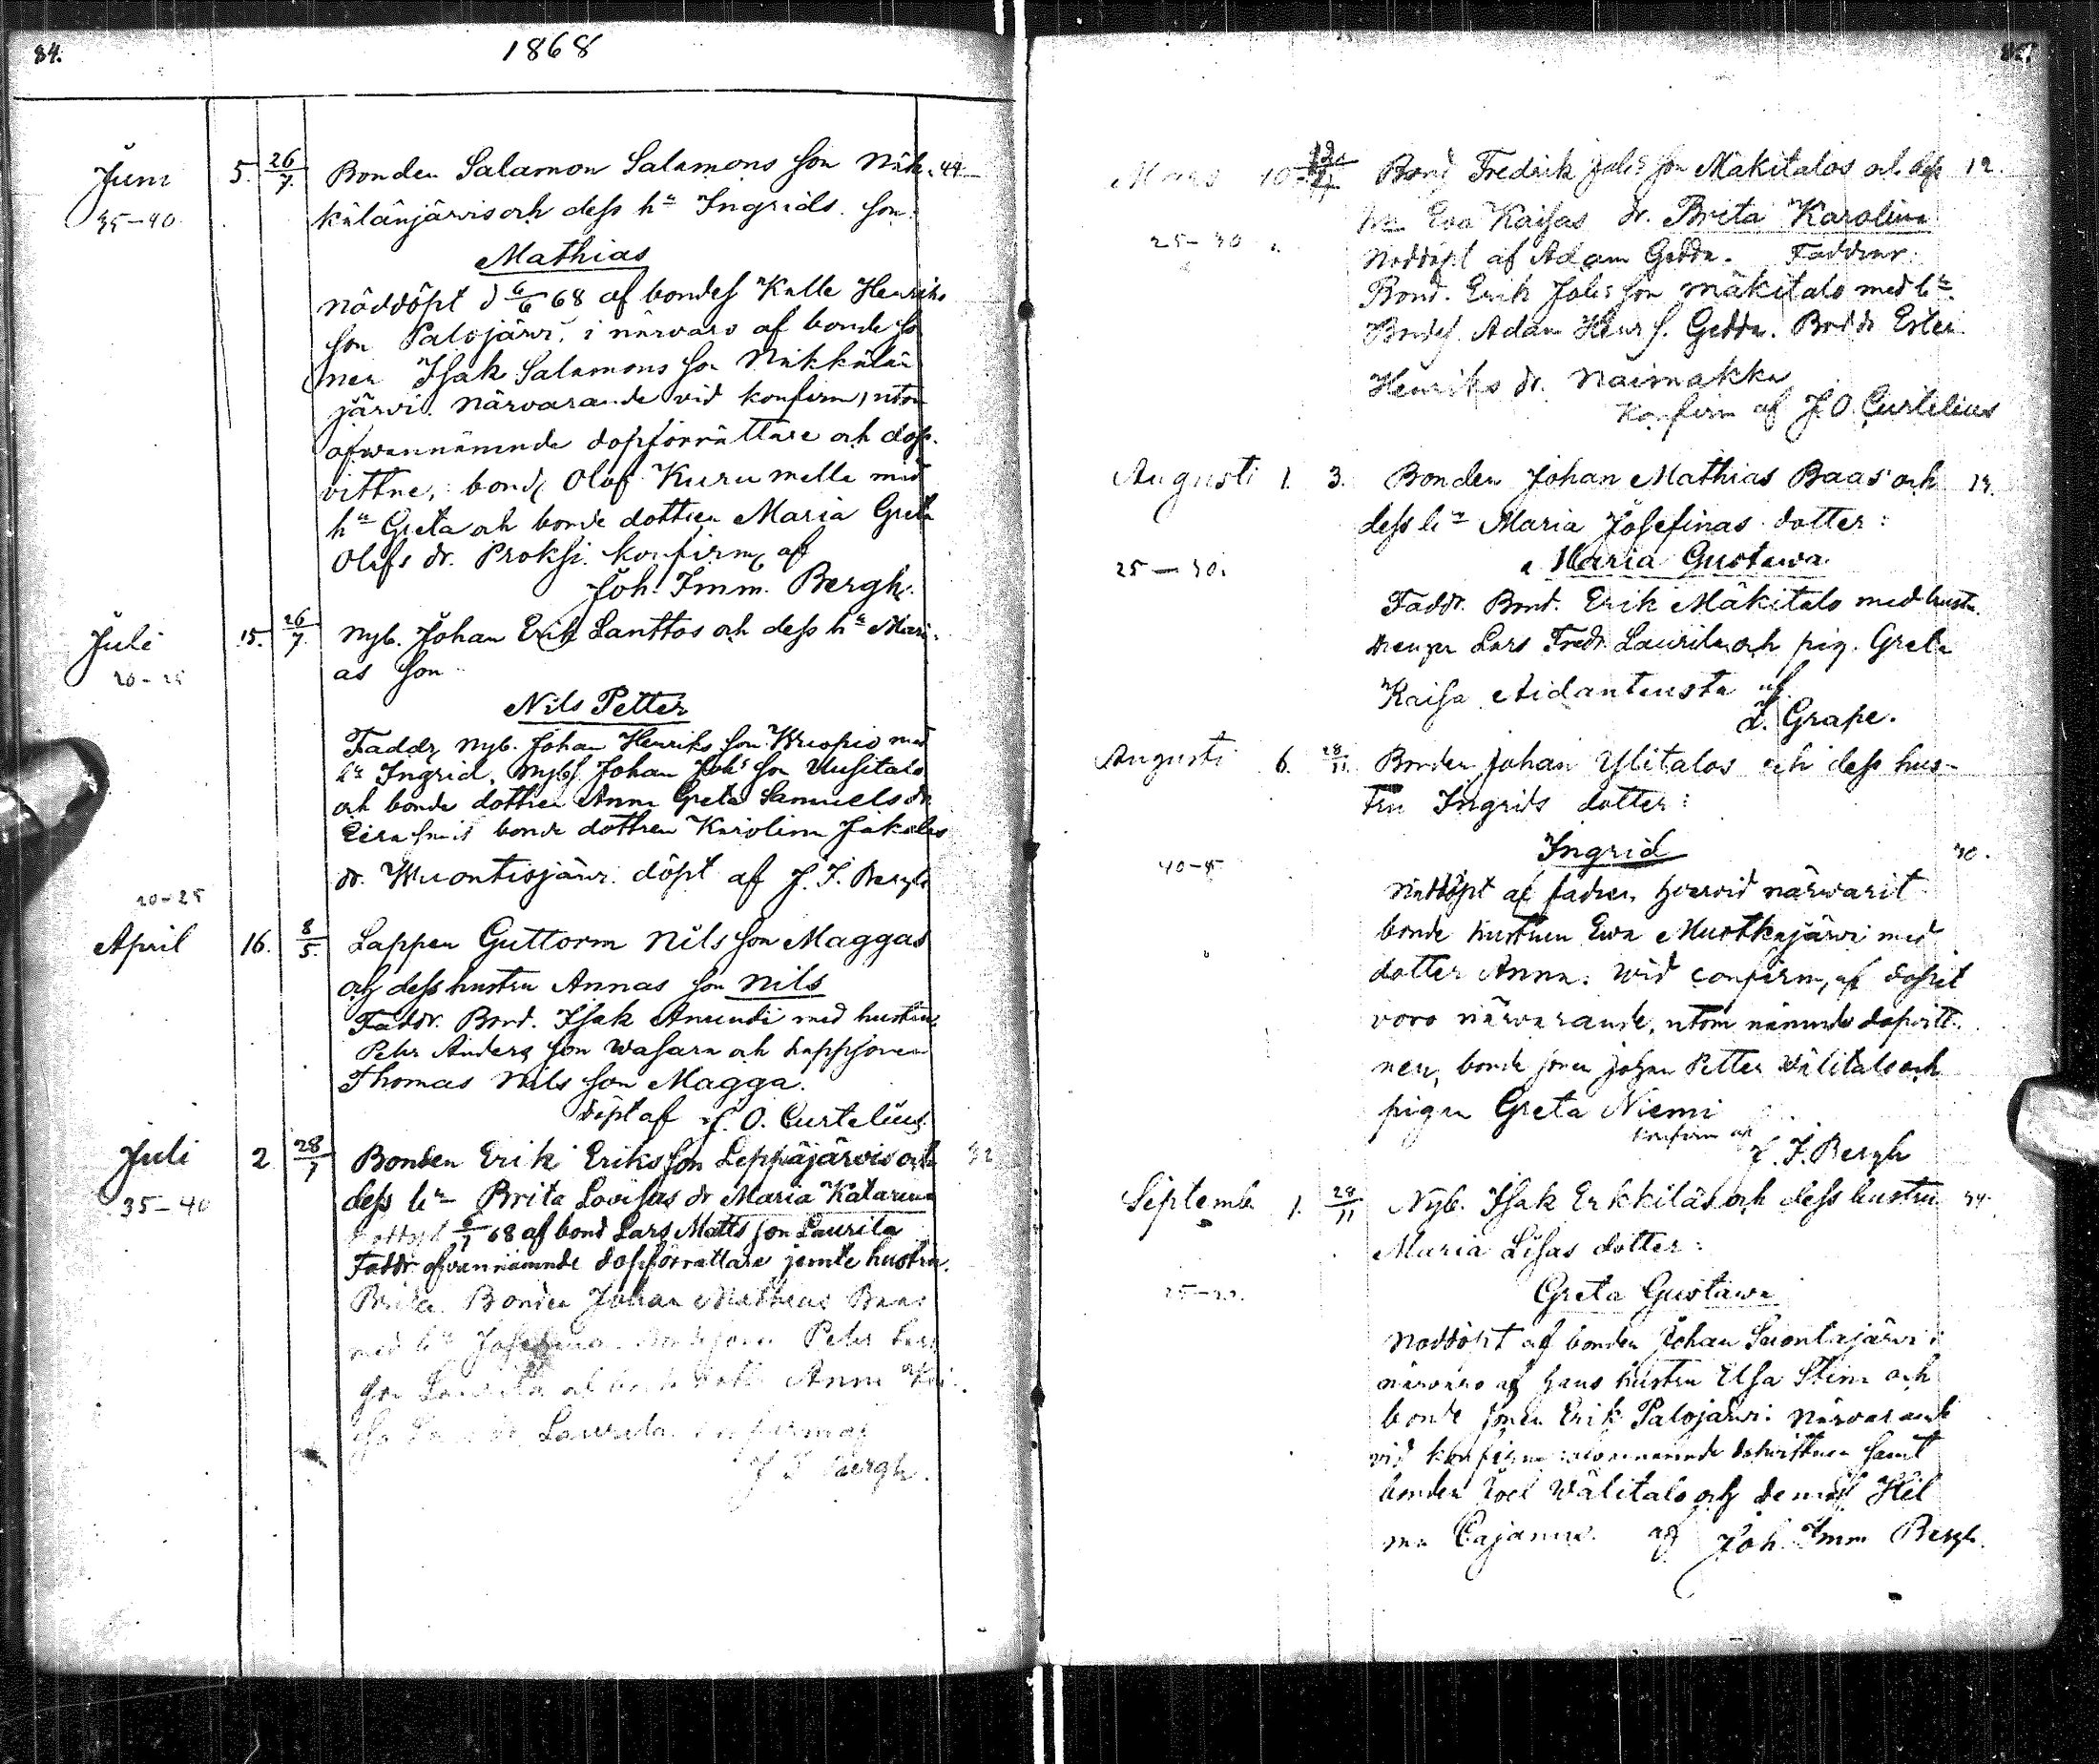 84.
1868
Juni 5. 26/7. Bonden Salamon Salamons son Näk- 44.
35-40. kälänjärvis och dess hu Ingrids son:
Mathias
Nöddöpt d 6/6 68 af bondes Kalle Henriks
son Palojärvi, i närvaro af bonde so
nen Isak Salamons son Näkkälän
järvi. Närvarande vid konfirm, utom
ofwannämnde dopförrättare och dop-
vittne, bond. Olof Kurumella med
hu Greta och bonde dottren Maria Greta
Olofs dr. Proksi. konfirm. af
Joh. Imm. Bergh.
Juli 15. 26/7. Nyb. Johan Erik Lanttos och dess hu Mari-
20-25 as son
Nils Petter
Faddr Nyb. Johan Henriks son Wuopio med
hu Ingrid. Nybs. Johan Joh:s son Uusitalo
och bonde dottren Anna Greta Samuels dr
bonde dottren Karolina Jakobs
dr. Wuontisjärvi. döpt af J. I. Bergh
20-25
April 16. 8/5. Lappen Guttorm Nils son Maggas
och dess hustru Annas son Nils
Faddr. Bond. Isak Anundi med hustru
Pehr Anders son Wasara och lappsonen
Thomas Nils son Magga.
döpt af J. O. Curtelius.
Juli 2 28/7 Bonden Erik Eriks son Leppäjärvis och 32
35-40 dess hu Brita Lovisas dr Maria Katarina
68 af bond Lars Matts son Laurila
Faddr. ofvannämnde dopförrättare jemte hustru
Brita. Bonden Johan Matheus Baas
med hu Josefina Pehr Lars
son Laurila Anna Kai-
sa Laurila. konfirm af
J I Bergh.
85.
Mars 10. Bond Fredrik Joh:s son Mäkitalos och dess 12.
hu Eva Kaisas dr. Brita Karolina
25-30 Nöddöpt af Adam Gedda. Faddrar:
Bond. Erik Joh:s son Mäkitalo med hu
Bondes. Adam Henr s. Gedda. Bondr Ester
Henriks dr. Naimakka
Konfirm af J. O. Curtelius
Augusti 1. 3. Bonden Johan Mathias Baas och 14.
dess hu Maria Josefinas dotter:
25-30. Maria Gustawa
Faddr. Bond. Erik Mäkitalo med hustr.
drengen Lars Fredr. Laurila och pig. Greta
Kaisa Aidantausta af
L. Grape.
Augusti 6. 28/11. Bonden Johan Ylitalos och dess hus-
tru Ingrids dotter:
Ingrid 40.
40-45 Nöddöpt af fadren, hvarvid närwarit
bonde hustrun Ewa Mustkajärvi med
dotter Anna. Wid confirm, af dopet
voro närvarande, utom nämnde dopvitt-
nen, bonde sonen Johan Petter Wälitalo och
pigan Greta Niemi
konfirm af
J. I. Bergh
Septemb. 1. 28/11 Nyb. Isak Erkkiläs och dess hustru 34.
Maria Lisas dotter:
25-30. Greta Gustawa
Nöddöpt af bonden Johan Suontajärvi i
närvaro af hans hustru Elsa Stina och
bonde sonen Erik Palojärvi. Närvarande
vid konfirm ofvannämnde dopvittnen samt
bonden Joel Wälitalo och demois Hil
ma Cajanus. af Joh. Imm Bergh.